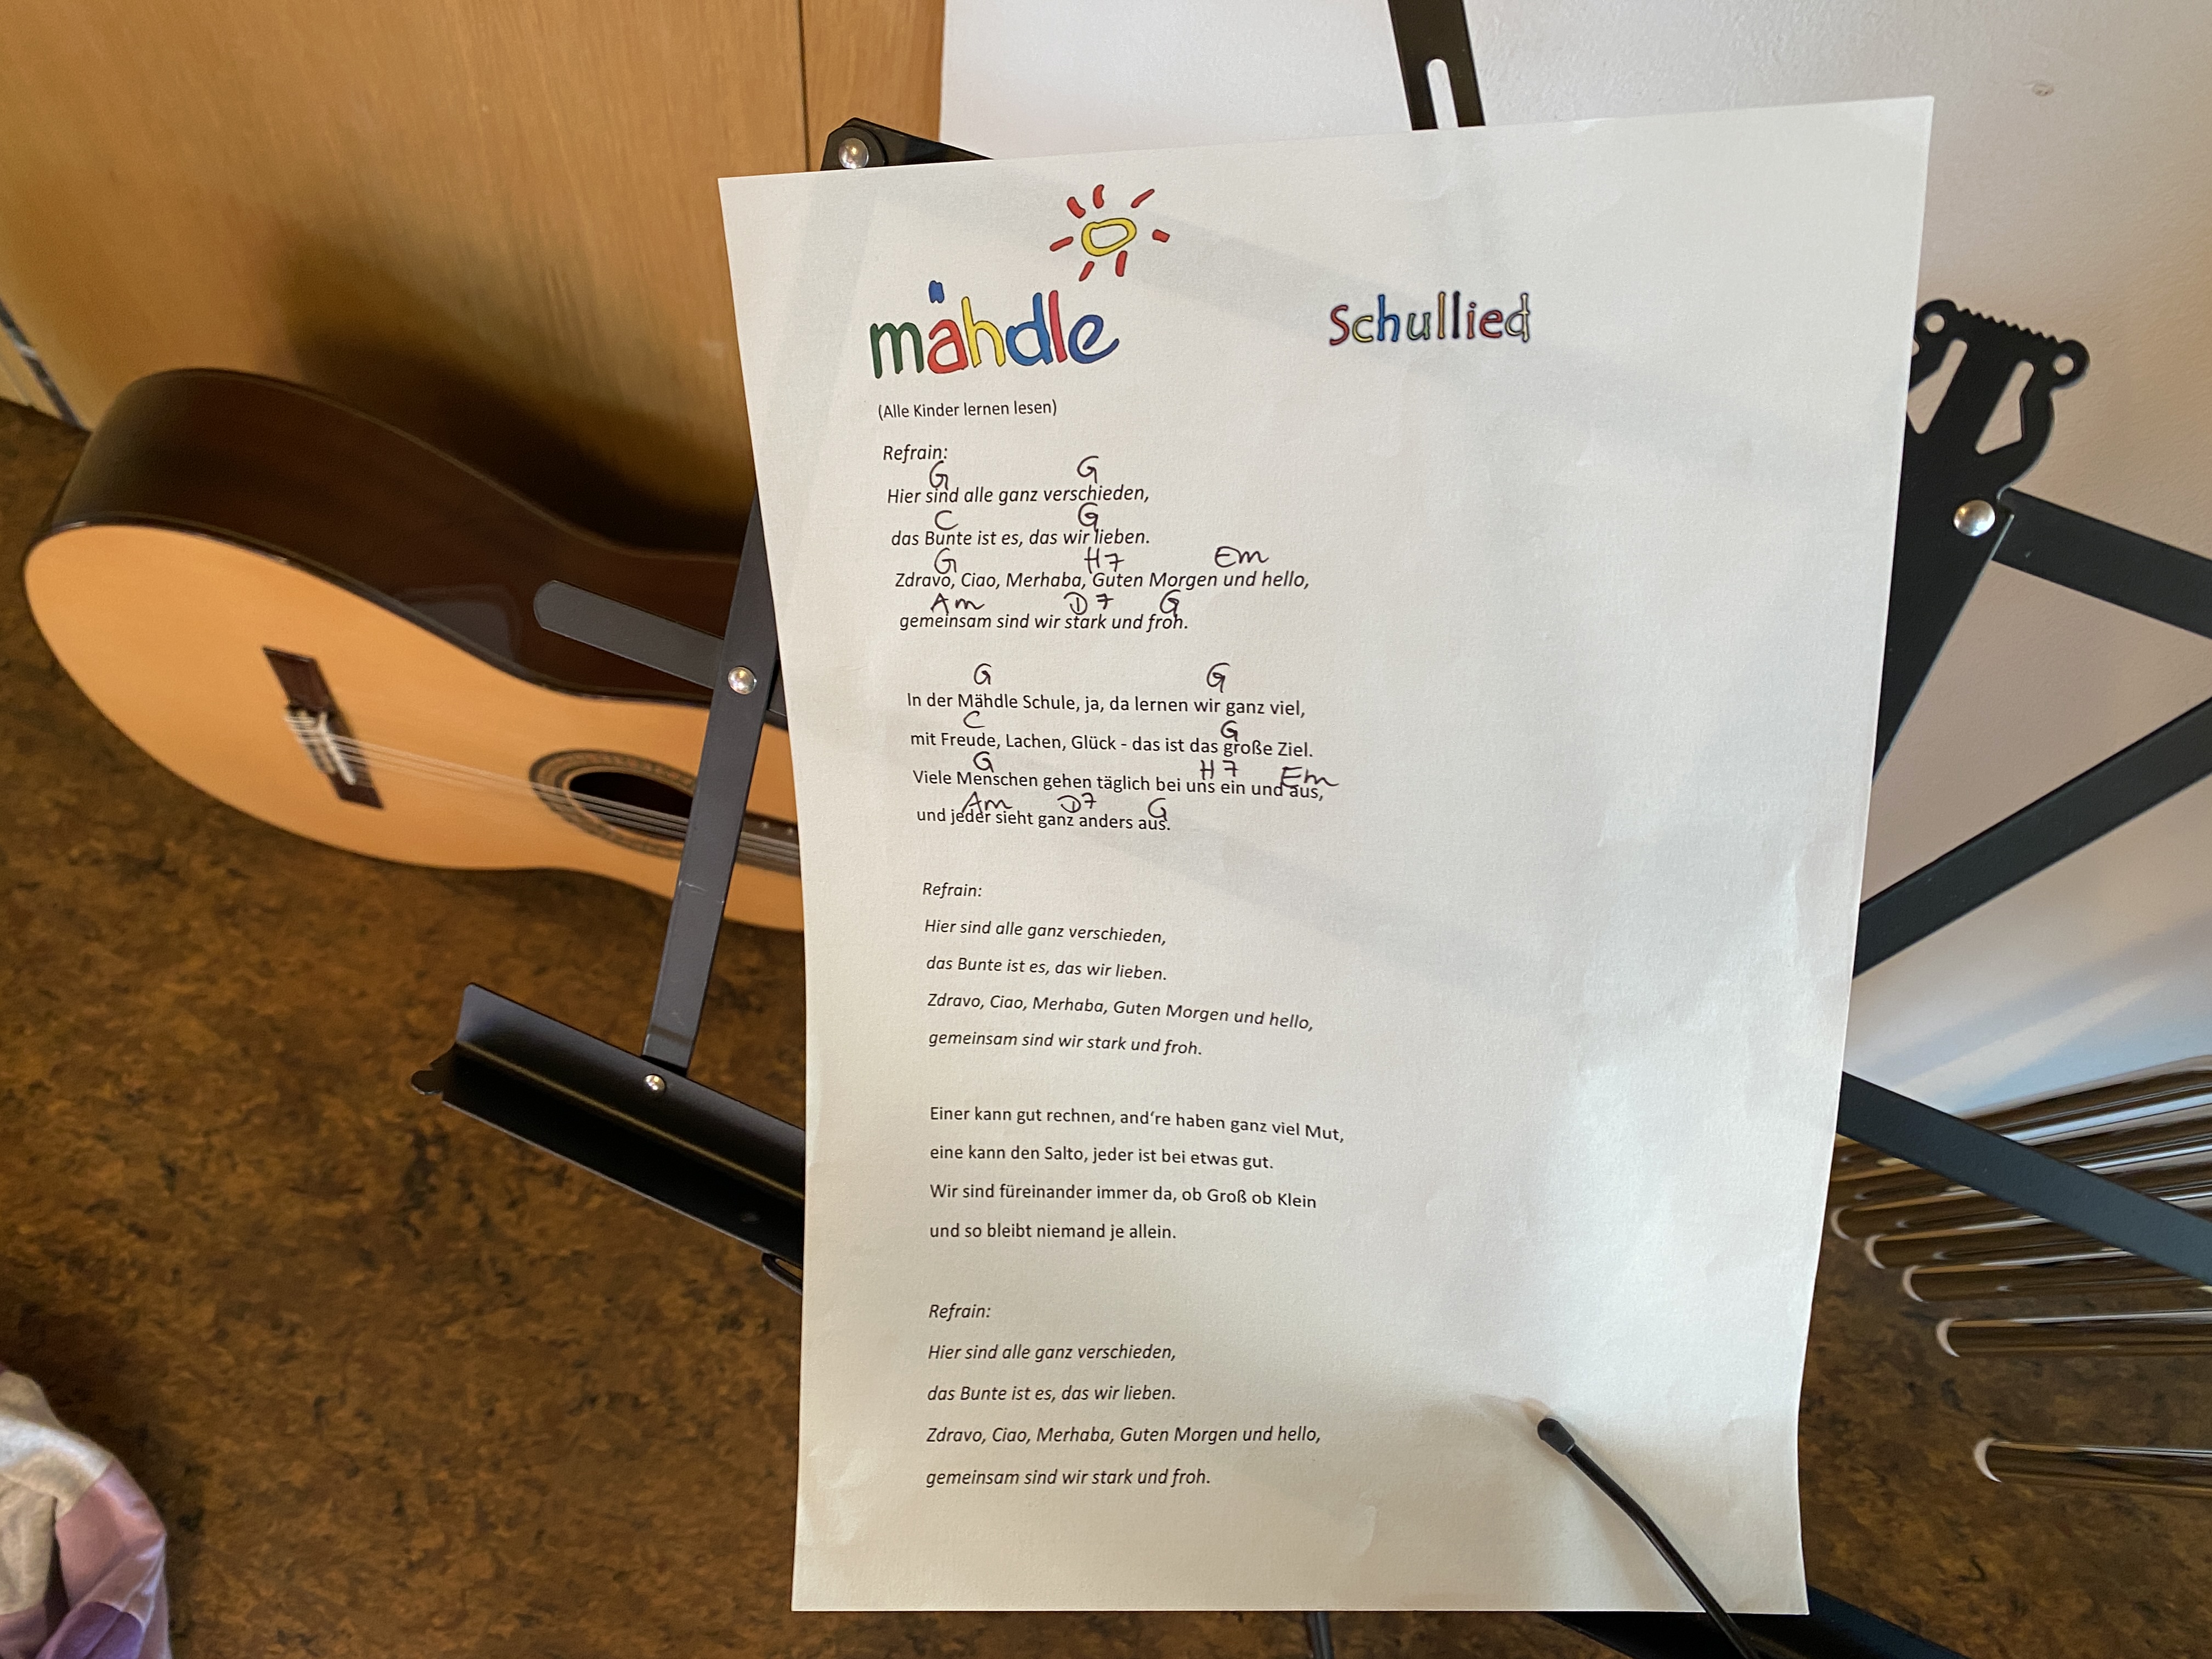 mähdle Schullied
(Alle Kinder lernen lesen)
Refrain:
G G
Hier sind alle ganz verschieden,
C G
das Bunte ist es, das wir lieben.
G H7 Em
Zdravo, Ciao, Merhaba, Guten Morgen und hello,
Am D7 G
gemeinsam sind wir stark und froh.
G G
In der Mähdle Schule, ja, da lernen wir ganz viel,
C G
mit Freude, Lachen, Glück - das ist das große Ziel.
G H7 Em
Viele Menschen gehen täglich bei uns ein und aus,
Am D7 G
und jeder sieht ganz anders aus.
Refrain:
Hier sind alle ganz verschieden,
das Bunte ist es, das wir lieben.
Zdravo, Ciao, Merhaba, Guten Morgen und hello,
gemeinsam sind wir stark und froh.
Einer kann gut rechnen, and‘re haben ganz viel Mut,
eine kann den Salto, jeder ist bei etwas gut.
Wir sind füreinander immer da, ob Groß ob Klein
und so bleibt niemand je allein.
Refrain:
Hier sind alle ganz verschieden,
das Bunte ist es, das wir lieben.
Zdravo, Ciao, Merhaba, Guten Morgen und hello,
gemeinsam sind wir stark und froh.